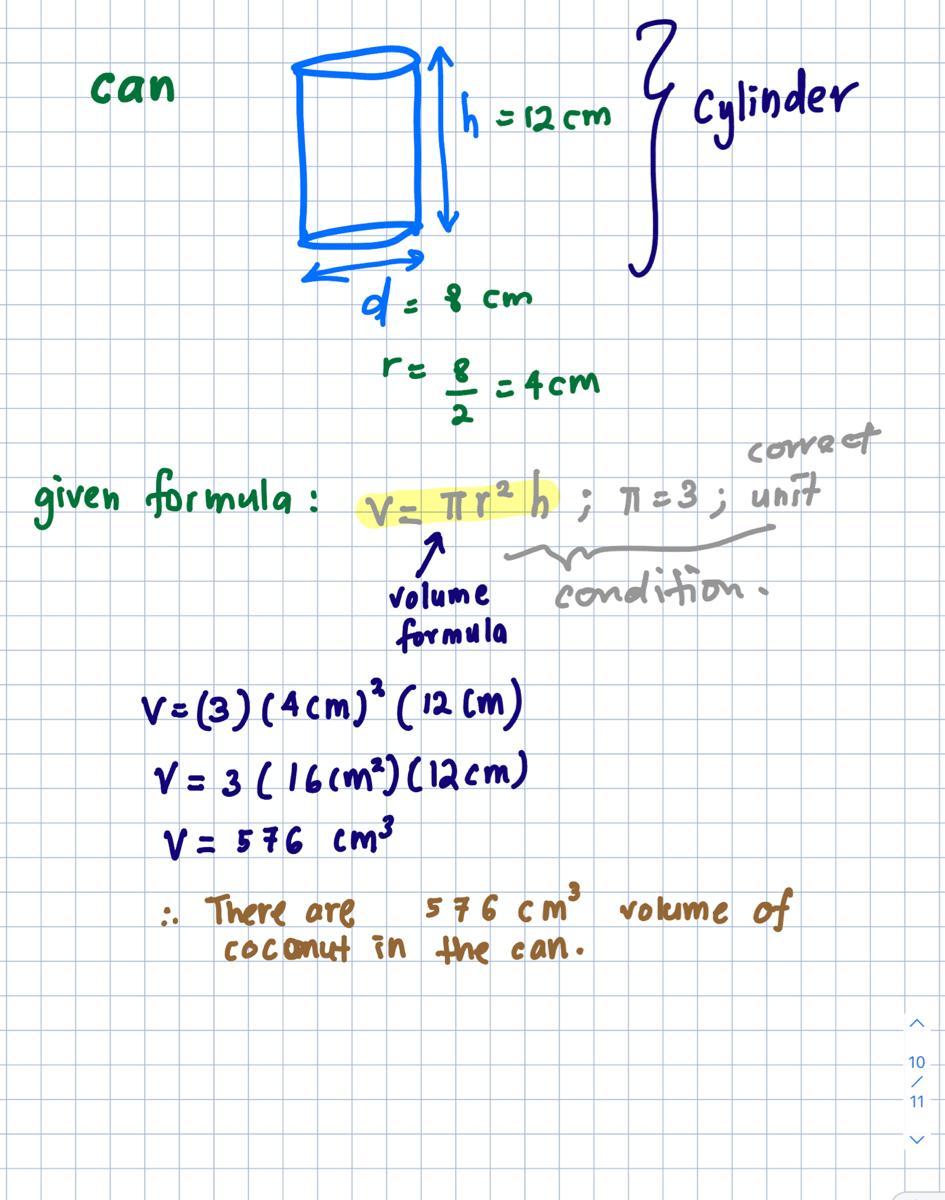 can
h = 12 cm
Cylinder
d = 8 cm
r = 8/2 = 4 cm
correct
given formula : V = πr² h ; π = 3 ; unit
volume
formula
condition.
V = (3) (4 cm)² (12 cm)
V = 3 (16 cm²) (12 cm)
V = 576 cm³
∴ There are 576 cm³ volume of
coconut in the can.
10
/
11